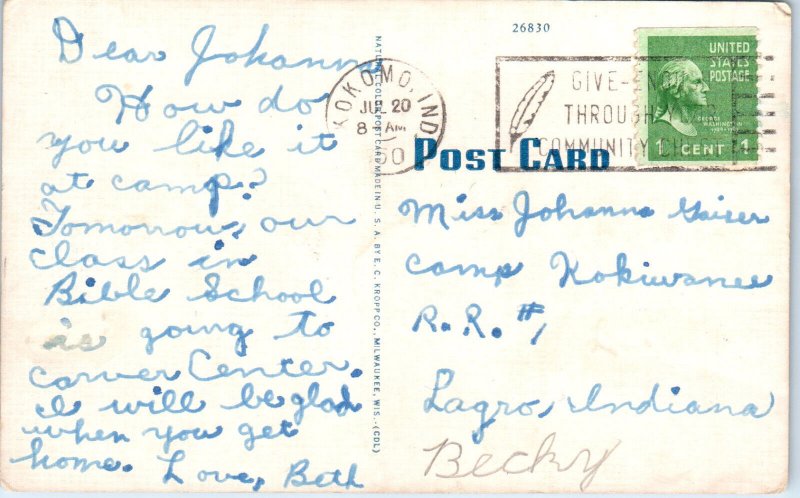 Dear Johanna
How do
you like it
at camp?
Tomorrow, our
class in
Bible School
is going to
Carver Center.
I will be glad
when you get
home. Love, Beth
NATURAL COLOR POST CARD MADE IN U.S.A. BY E. C. KROPP CO., MILWAUKEE, WIS. (CDL)
26830
KOKOMO, IND
20
8 AM
50
GIVE-
THROUGH
COMMUNITY
UNITED
STATES
POSTAGE
GEORGE
WASHINGTON
1 CENT 1
POST CARD
Miss Johanna Gaiser
Camp Kokiwanee
R.R. #1
Lagro, Indiana
Becky